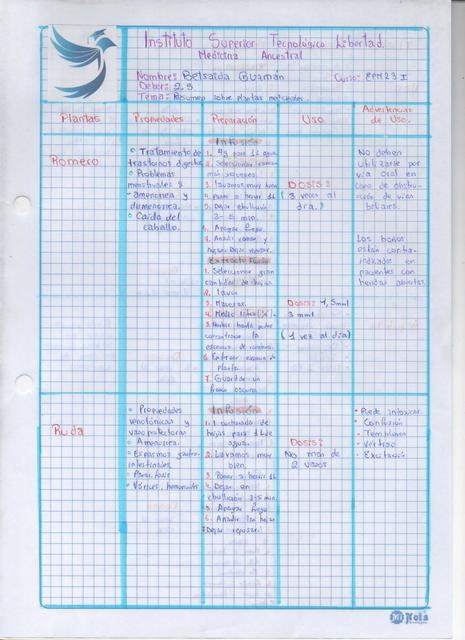 Instituto Superior Tecnológico Libertad.
Medicina Ancestral
Nombres: Betsaida Guamán
Curso: EPM23 I
Deber: 2.5
Tema: Resumen sobre plantas medicinales.
Plantas
Propiedades
Preparación
Uso
Advertencias
de Uso.
Romero
• Tratamiento de
trastornos digestivos
• Problemas
menstruales
amenorrea y
dismenorrea.
• Caída del
caballo.
Infusión
1. 4g para 1L agua
2. Seleccionar ramas
más jóvenes.
3. Lavamos muy bien
4. Poner a hervir 1L
5. Dejar ebullición
3-5 min.
6. Apagar fuego.
7. Añadir ramas y
Dejar reposar.
Extracto Fluido
1. Seleccionar gran
cantidad de
2. Lavar
3. Macerar.
4. Medio
5.
concentrar la
esencia de romero.
6. Extraer
Planta.
7. Guardar en
frasco oscuro
DOSIS:
(3 veces al
día.)
Dosis: 1,5ml
3 ml
(1 vez al día)
No deben
utilizarse por
vía oral en
caso de obstru-
cción de vías
biliares.
Los baños
están contra-
indicado en
pacientes con
heridas abiertas.
Ruda
• Propiedades
venotónicas y
vaso protectoras
• Amenorrea.
• Espasmos gastro-
intestinales
• Varices, hemorroides
Infusión
1. 1 cucharada de
hojas para 1 L de
agua.
2. Lavamos muy
bien.
3. Poner a hervir 1L
4. Dejar en
ebullición 3-5 min.
5. Apagar fuego
6. Añadir las hojas
7. Dejar reposar.
Dosis:
No más de
2 vasos
• Puede intoxicar.
• Confusión
• Temblores
• Vértigo
• Excitación
Mi Nota